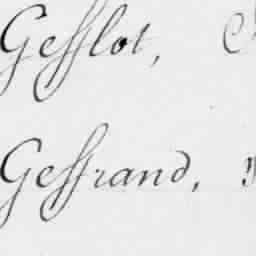 Gefslot,
Gefsrand,